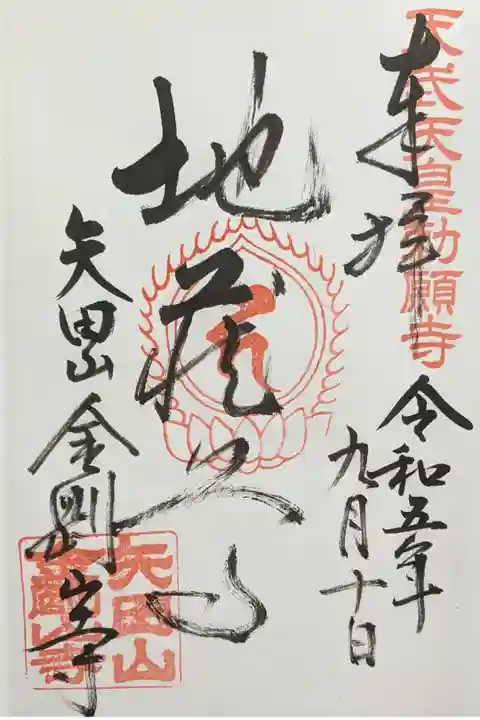 天武天皇勅願寺
奉拝
令和五年
九月十日
地蔵尊
矢田山
金剛山寺
矢田山
金剛山寺